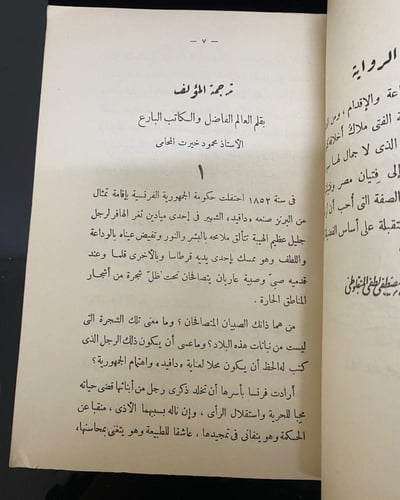 — ٧ —
ترجمة المؤلف
بقلم العالم الفاضل والكاتب البارع
الأستاذ محمود خيرت المحامى
١
فى سنة ١٨٥٢ احتفلت حكومة الجمهورية الفرنسية بإقامة تمثال
من البرنز صنعه «دافيد» الشهير فى إحدى ميادين ثغر الهافر لرجل
جليل عظيم الهيبة تتألق ملامحه بالبشر والنور وتفيض عيناه بالوداعة
واللطف وهو ممسك بإحدى يديه قرطاسا وبالأخرى قلما وعند
قدميه صبى وصبية عاريان يتصالحان تحت ظل شجرة من أشجار
المناطق الحارة .
من هما ذانك الصبيان المتصالحان ؟ وما معنى تلك الشجرة التى
ليست من نباتات هذه البلاد ؟ وما عسى أن يسكون ذلك الرجل الذى
كتب له الحظ أن يكون محلا لعناية «دافيد» واهتمام الجمهورية ؟
أرادت فرنسا بأسرها أن تخلد ذكرى رجل من أبنائها قضى حياته
محبا للحرية واستقلال الرأى ، وإن ناله بسببهما الأذى ، منقبا عن
الحكمة وهو يتفانى فى تمجيدها ، عاشقا للطبيعة وهو يتغنى بمحاسنها،
الرواية
عة والإقدام ، ومن
ة الفتى ملاك أخلاقه
الذى لا جمال لها
إلى فتيان مصر
الصفة التى أحب أن
تقبلة على أساس الفضيلة
مصطفى لطفى المنفلوطى